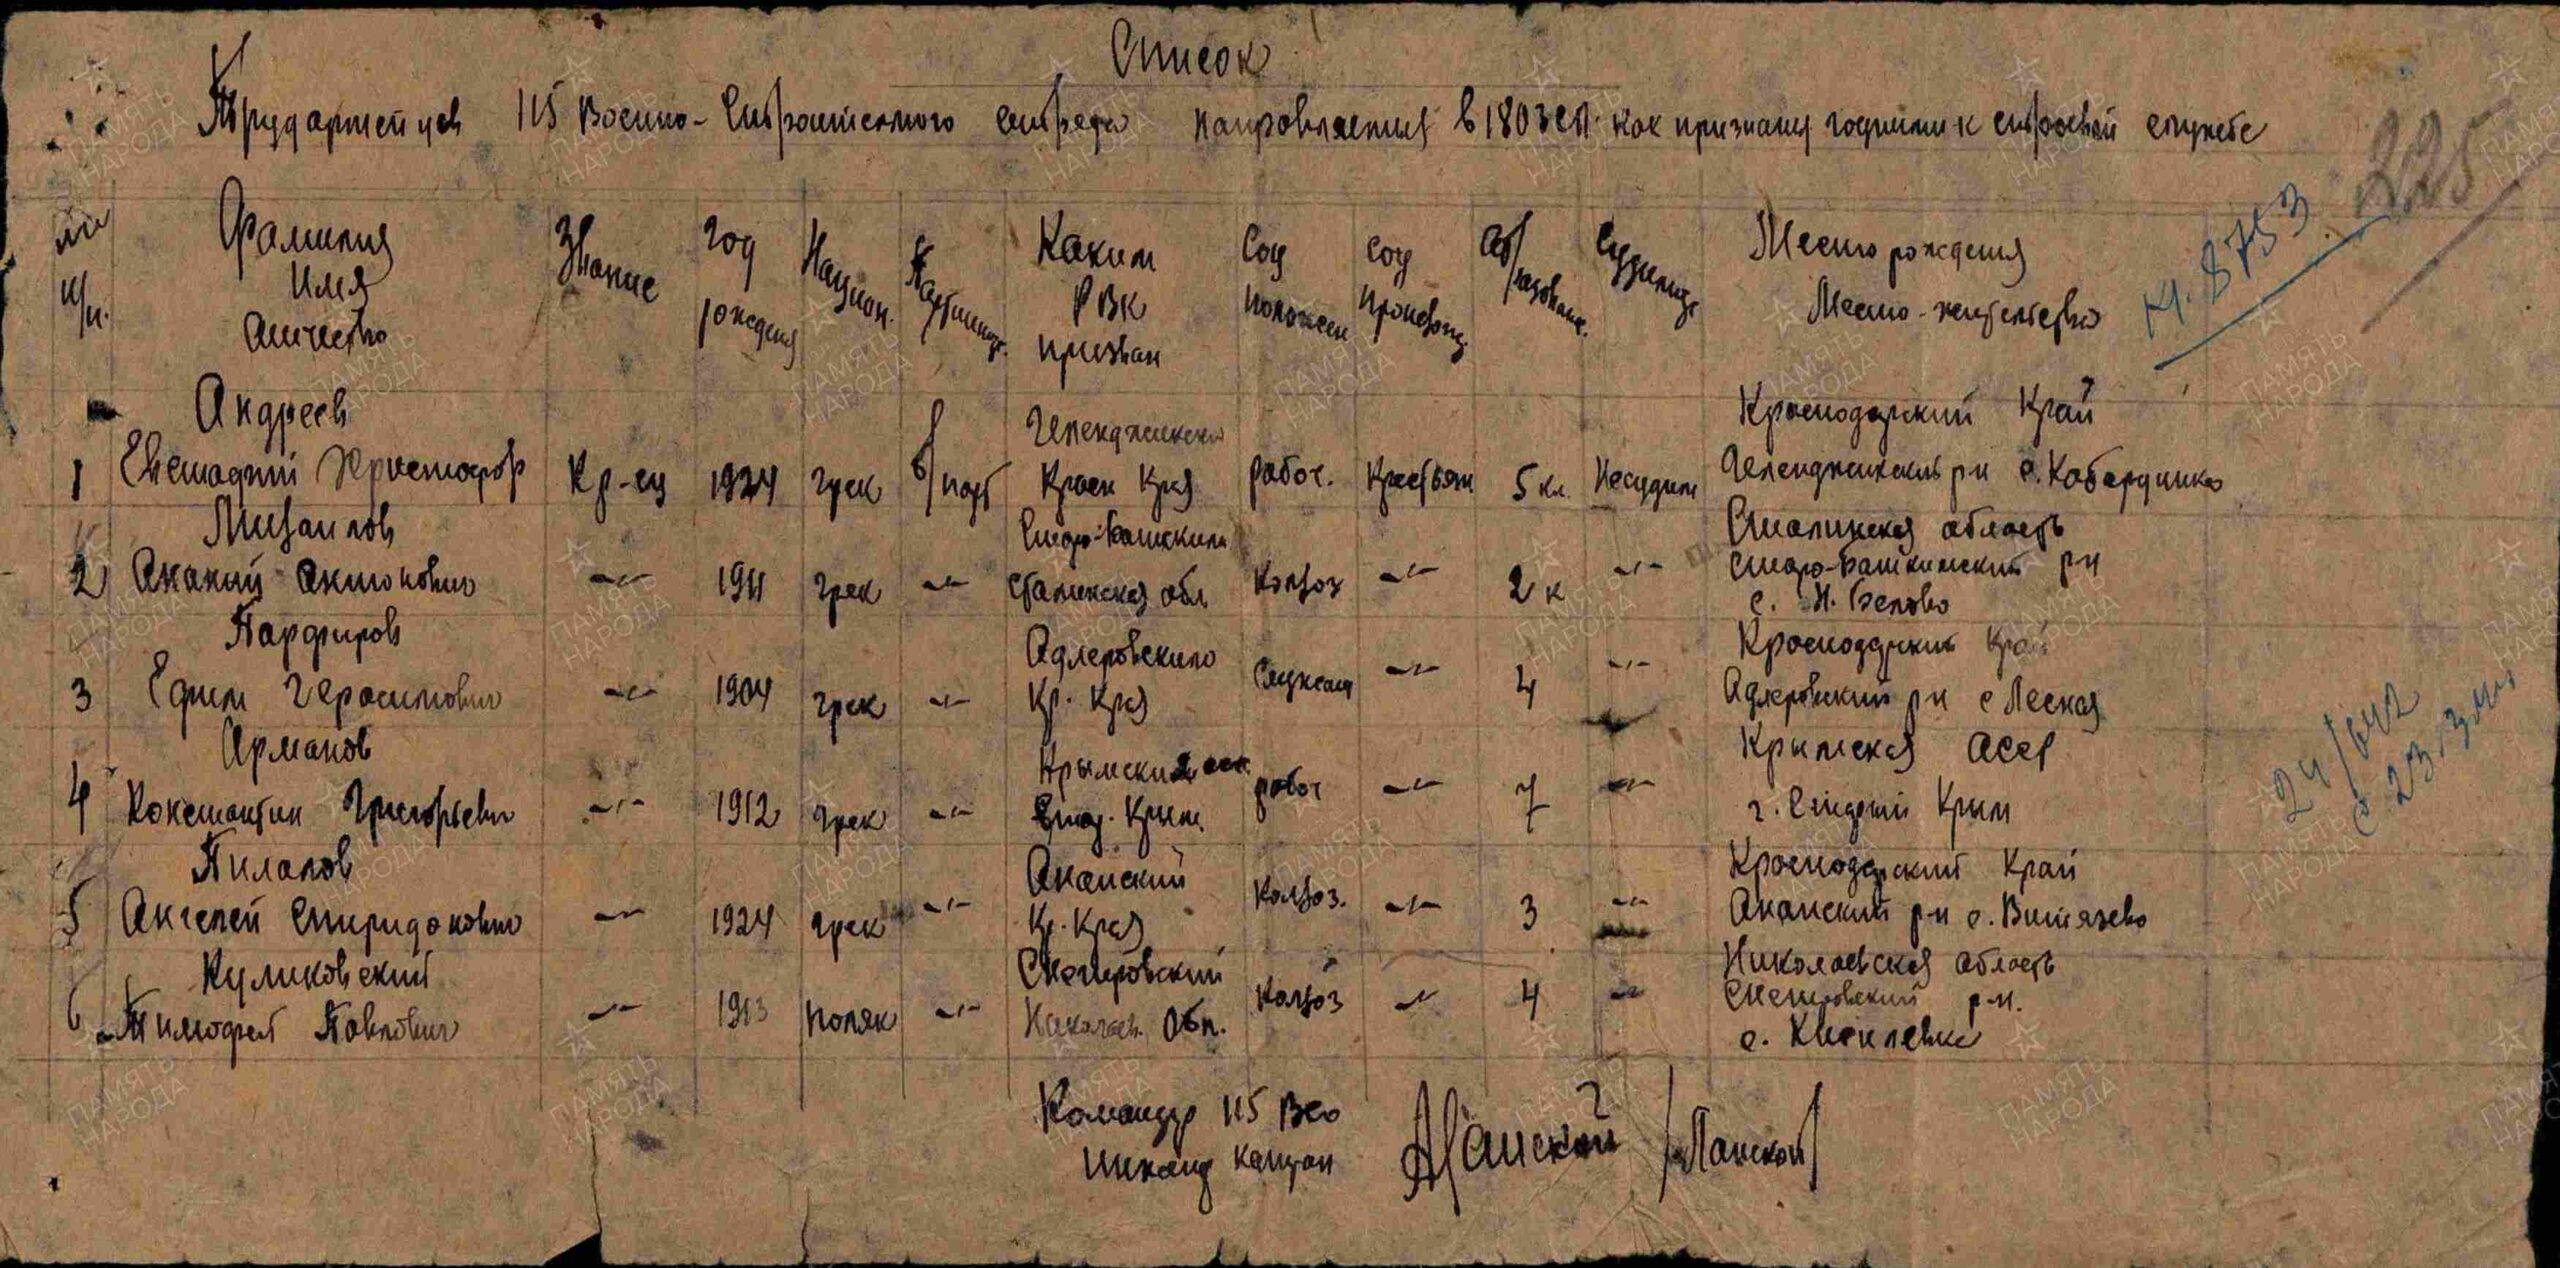 Список
Трудармейцев 115 Военно-Строительного отряда направляемых в 180 зсп. как признаны годными к строевой службе
225
Н. 8753
№№ п/п.
Фамилия Имя Отчество
Звание
Год рождения
Национ.
Партийност.
Каким РВК призван
Соц положен
Соц происхожд.
Образование.
Судимост
Место рождения
Место-жительство
Андреев Геленджикски Краснодарский Край
1 Евстафий Христофор Кр-ец 1924 грек б/парт Красн Края рабоч. Крестьян 5 кл. Несудим Геленджикский р-н с. Кабардинка
Михайлов Сталинская область
2 Ананий Антонович -"- 1911 грек -"- Сталинская обл Колхоз -"- 2 к -"- р-н
с. Н. Белово
Парфиров Адлеровского Краснодарский край
3 Ефим Герасимович -"- 1904 грек -"- Кр. Края Служащ -"- 4 -"- Адлеровский р-н с Лесная
Арманов Крымская АССР
4 Константин Григорьевич -"- 1912 грек -"- Стар. Крым. рабоч -"- 7 -"- г. Старый Крым
Пилапов Анапский Краснодарский Край
5 Ангелей Спиридонович -"- 1924 грек -"- Кр. Края Колхоз. -"- 3 -"- Анапский р-н с. Витязево
Куликовский Снегировский Николаевская область
6 Тимофей Павлович -"- 1913 поляк -"- Николаев. Обл. Колхоз -"- 4 -"- Снегировский р-н.
с. Киселевка
Командир 115 ВСО
Инженер Капитан Ланской /Ланской/
ПАМЯТЬ НАРОДА